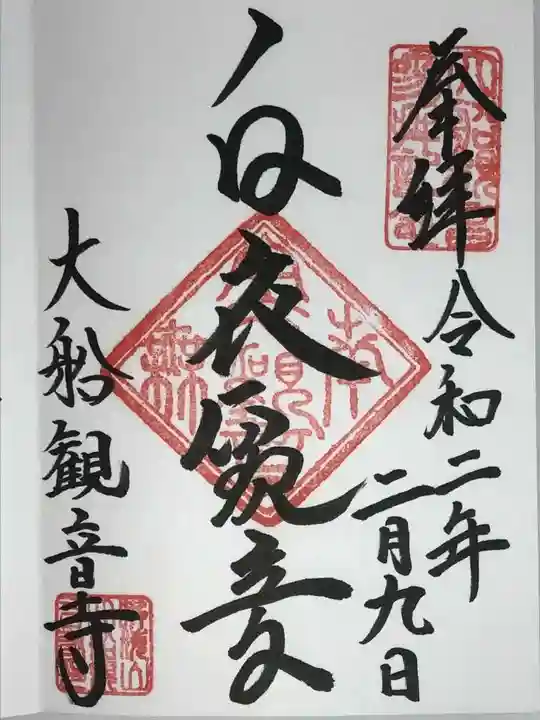 奉拝
令和二年
二月九日
白衣観音
大船観音寺